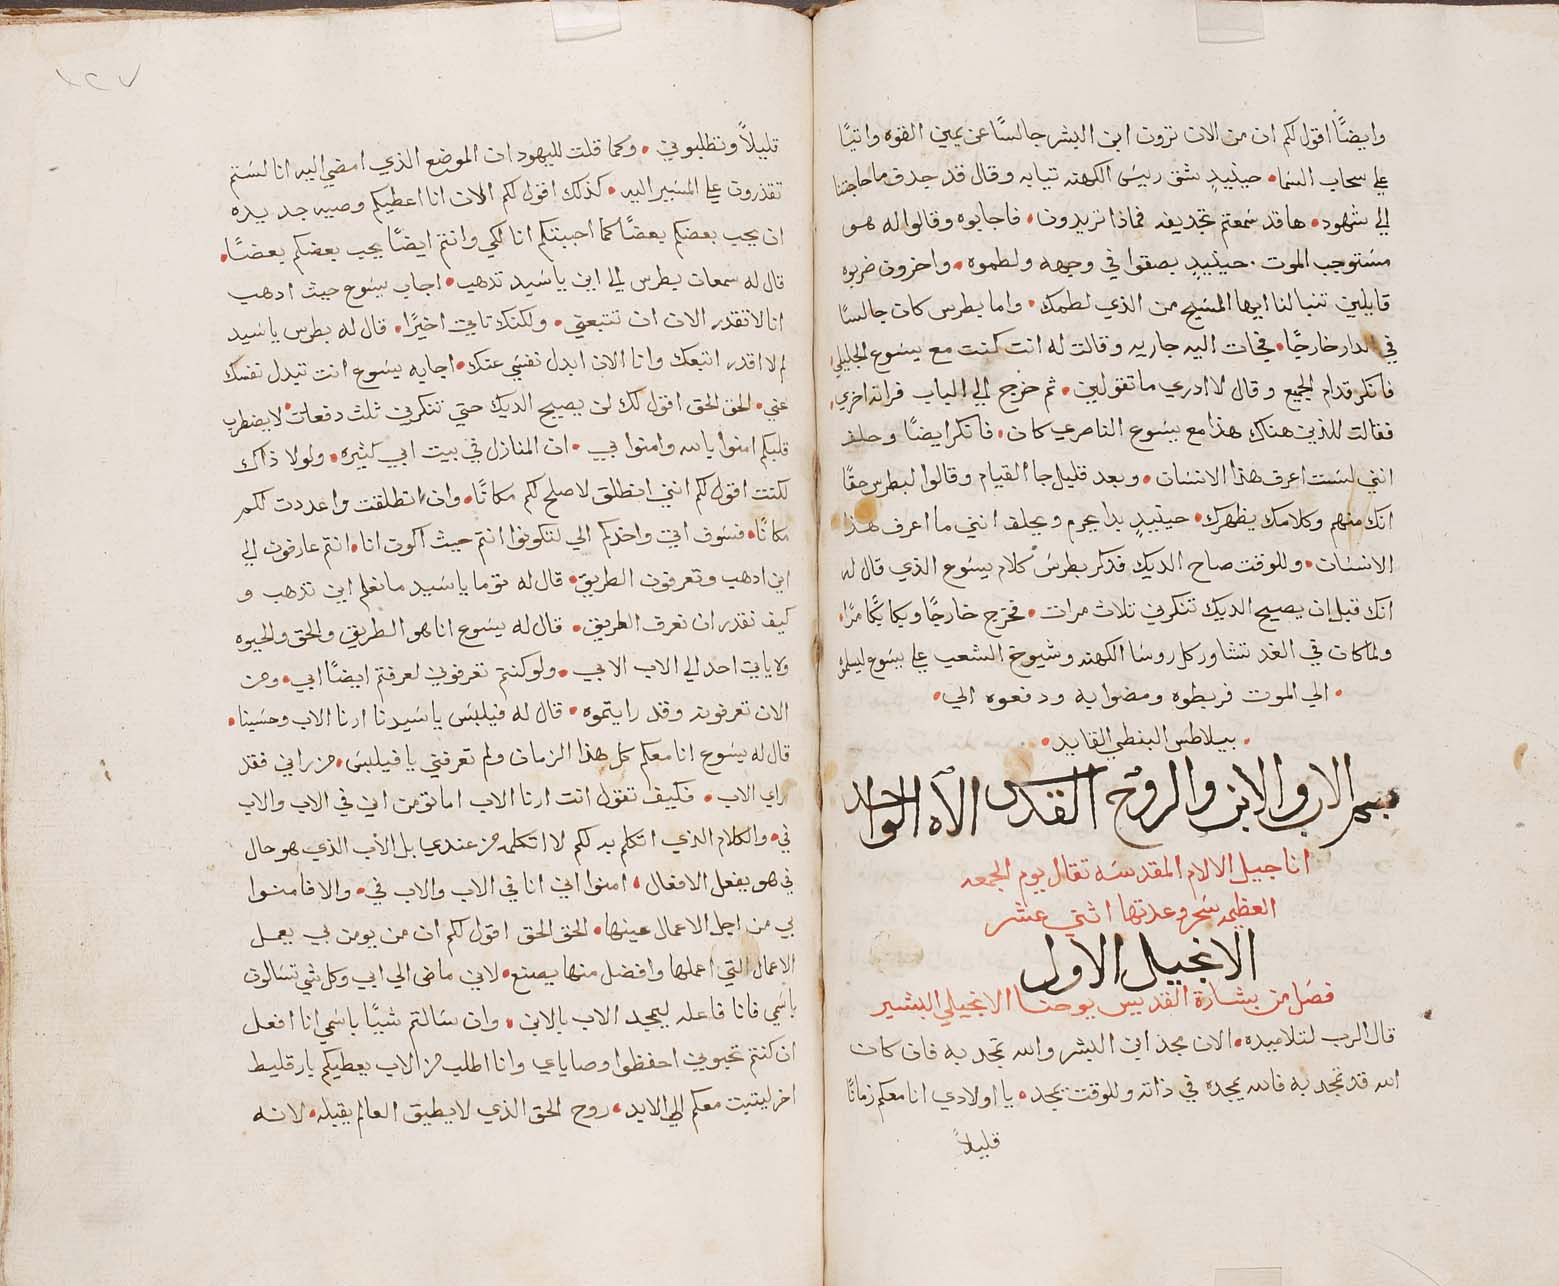 وايضًا اقول لكم ان من الان ترون ابن البشر جالسًا عن يمين القوه واتيًا
علي سحاب السما. حينيدٍ شق رييس الكهنه تيابه وقال قد جدف ما حاجتنا
الي شهود. ها قد سمعتم تجديفه فماذا تريدون. فاجابوه وقالوا له هو
مستوجب الموت. حينيدٍ بصقوا في وجهه ولطموه. واخرون ضربوه
قايلين تنبا لنا ايها المسيح من الذي لطمك. واما بطرس كان جالسًا
في الدار خارجًا. فجات اليه جاريه وقالت له انت كنت مع يسوع الجليلي
فانكر قدام الجميع وقال لا ادري ما تقولين. ثم خرج الي الباب فراته اخري.
فقالت للذين هناك هذا مع يسوع الناصري كان. فانكر ايضًا وحلف
انني لست اعرف هذا الانسان. وبعد قليل جا القيام وقالوا لبطرس حقًا
انك منهم وكلامك يظهرك. حينيدٍ بدا يحرم ويحلف انني ما اعرف هذا
الانسان. وللوقت صاح الديك فدكر بطرس كلام يسوع الذي قال له
انك قبل ان يصيح الديك تنكرني تلات مرات. فخرج خارجًا وبكا بكًا مرًا.
ولما كان في الغد تشاور كل روسا الكهنه وشيوخ الشعب علي يسوع ليسلموه
. الي الموت فربطوه ومضوا به ودفعوه الي.
. بيلاطس البنطي القايد.
بسم الاب والابن والروح القدس الاه الواحد
اناجيل الالام المقدسه تقال يوم الجمعه
العظيمه سحر وعدتها اثني عشر
الانجيل الاول
فصل من بشارة القديس يوحنا الانجيلي البشير
قال الرب لتلاميده. الان مجد ابن البشر والله تمجد به فان كان
الله قد تمجد به فالله يمجده في ذاته وللوقت يمجده. يا اولادي انا معكم زمانًا
قليلاً
٢٢٧
قليلاً وتطلبوني. وكما قلت لليهود ان الموضع الذي امضي اليه انا لستم
تقدرون علي المسير اليه. كذلك اقول لكم الان انا اعطيكم وصيه جديده
ان يحب بعضكم بعضًا كما احببتكم انا لكي وانتم ايضًا يحب بعضكم بعضًا.
قال له سمعان بطرس الي اين يا سيد تذهب. اجاب يسوع حيث ادهب
انا لا تقدر الان ان تتبعني. ولكنك تاتي اخيرًا. قال له بطرس يا سيد
لم لا اقدر اتبعك وانا الان ابدل نفسي عنك. اجابه يسوع انت تبدل نفسك
عني. الحق الحق اقول لك لن يصيح الديك حتي تنكرني ثلث دفعات. لا يضطرب
قلبكم امنوا بالله وامنوا بي. ان المنازل في بيت ابي كثيره. ولولا ذاك
لكنت اقول لكم انني انطلق لاصلح لكم مكانًا. وان انطلقت واعددت لكم
مكانًا. فسوف اتي واخدكم الي لتكونوا انتم حيث اكون انا. انتم عارفون الي
اين ادهب وتعرفون الطريق. قال له توما يا سيد ما نعلم اين تذهب و
كيف نقدر ان نعرف الطريق. قال له يسوع انا هو الطريق والحق والحيوه
ولا ياتي احد الي الاب الا بي. ولو كنتم تعرفوني لعرفتم ايضًا ابي. ومن
الان تعرفونه وقد رايتموه. قال له فيلبس يا سيدنا ارنا الاب وحسبنا.
قال له يسوع انا معكم كل هذا الزمان ولم تعرفني يا فيلبس. من راني فقد
راي الاب. فكيف تقول انت ارنا الاب اما تومن اني في الاب والاب
في. والكلام الذي اتكلم به لكم لا اتكلمه من عندي بل الاب الذي هو حال
في هو يفعل الافعال. امنوا اني انا في الاب والاب في. والا فامنوا
بي من اجل الاعمال عينها. الحق الحق اقول لكم ان من يومن بي يعمل
الاعمال التي اعملها وافضل منها يصنع. لاني ماضي الي ابي وكل شي تسالون
باسمي فانا فاعله ليمجد الاب بالابن. وان سالتم شيًا باسمي انا افعل
ان كنتم تحبوني احفظوا وصاياي وانا اطلب من الاب يعطيكم بارقليط
اخر ليتبت معكم الي الابد. روح الحق الذي لا يطيق العالم يقبله. لانه